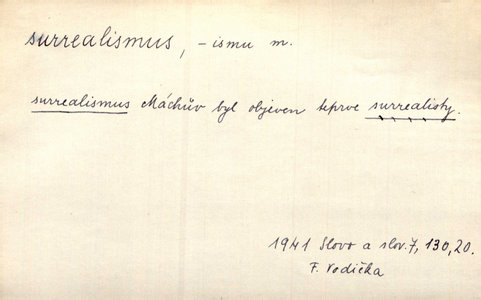 surrealismus, -ismu m.
surrealismus Máchův byl objeven teprve surrealisty.
1941 Slovo a slov. 7, 130, 20.
F. Vodička